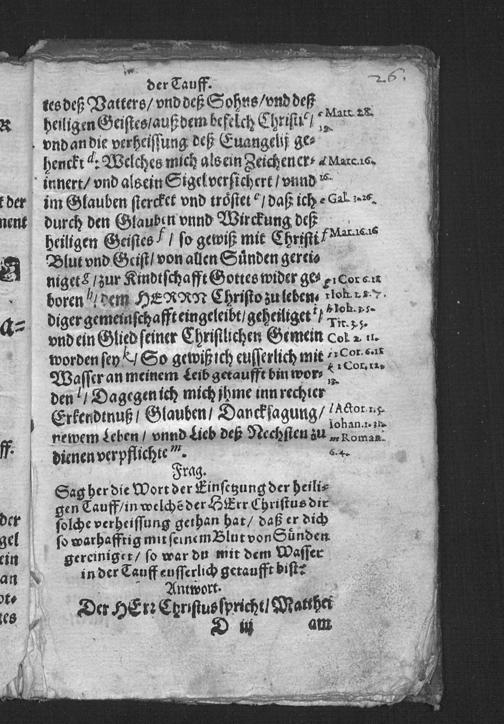 26.
der Tauff.
tes deß Vatters/ vnd deß Sohns/ vnd deß
heiligen Geistes/ auß dem befelch Christi c/
vnd an die verheissung deß Euangelij ge-
henckt d: Welches mich als ein Zeichen er-
innert/ vnd als ein Sigel versichert/ vnnd
im Glauben stercket vnd tröstet e/ daß ich
durch den Glauben vnnd Wirckung deß
heiligen Geistes f/ so gewiß mit Christi
Blut vnd Geist/ von allen Sünden gerei-
niget g/ zur Kindtschafft Gottes wider ge-
boren h/ dem HERRN Christo zu leben-
diger gemeinschafft eingeleibt/ geheiliget i/
vnd ein Glied seiner Christlichen Gemein
worden sey k/ So gewiß ich eusserlich mit
Wasser an meinem Leib getaufft bin wor-
den l/ Dagegen ich mich jhme inn rechter
Erkendtnuß/ Glauben/ Dancksagung/
newem Leben/ vnnd Lieb deß Nechsten zu
dienen verpflichte m.
c Matt. 28.
19.
d Marc. 16.
16.
e Gal. 3. 26
f Mar. 16. 16
g 1 Cor. 6. 11
1 Joh. 1. 7.
h Joh. 3. 5.
Tit. 3. 5.
Col. 2. 11.
i 1 Cor. 6. 11
k 1 Cor. 12.
13.
l Actor. 1. 5.
Iohan. 1.
m Roman.
6. 4.
Frag.
Sag her die Wort der Einsetzung der heili-
gen Tauff/ in welchē der HErr Christus dir
solche verheissung gethan hat/ daß er dich
so warhafftig mit seinem Blut von Sünden
gereiniget/ so war du mit dem Wasser
in der Tauff eusserlich getaufft bist?
Antwort.
Der HErr Christus spricht/ Matthei
D iij am